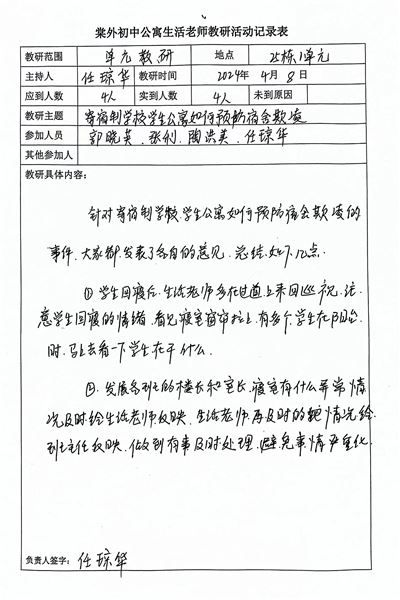 棠外初中公寓生活老师教研活动记录表
教研范围 单元教研 地点 25栋1单元
主持人 任琼华 教研时间 2024年4月8日
应到人数 4人 实到人数 4人 未到原因
教研主题 寄宿制学校学生公寓如何预防宿舍欺凌
参加人员 郭晓英、张利、陶洪美、任琼华
其他参加人
教研具体内容:
针对寄宿制学校学生公寓如何预防宿舍欺凌的
事件,大家都发表了各自的意见,总结如下几点.
①学生回寝后,生活老师多在过道上来回巡视,注
意学生回寝的情绪,看见寝室窗帘拉上,有多个学生在阳台
时,马上去看一下学生在干什么.
②.发展各班的楼长和室长,寝室有什么异常情
况及时给生活老师反映,生活老师再及时的把情况给
班主任反映,做到有事及时处理,避免事情严重化.
负责人签字: 任琼华